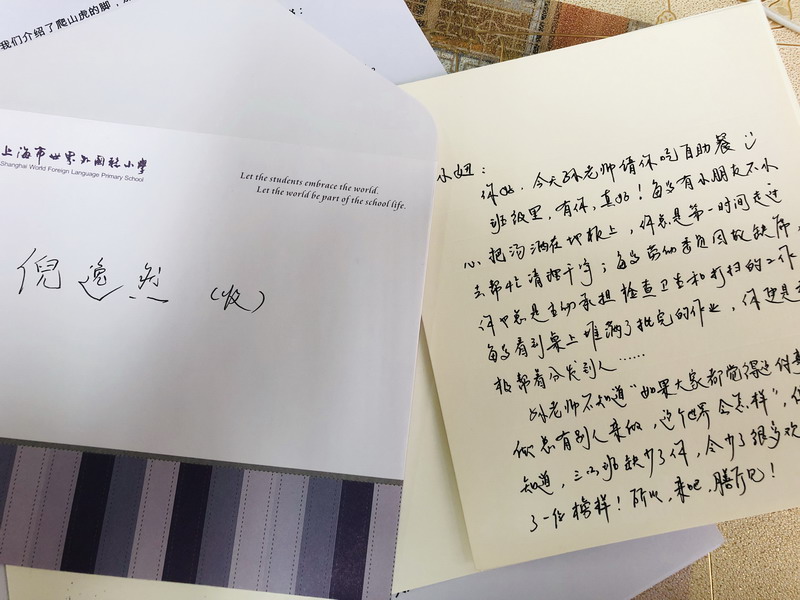 我们介绍了爬山虎的脚，
上海市世界外国语小学
Shanghai World Foreign Language Primary School
Let the students embrace the world.
Let the world be part of the school life.
倪逸然（收）
小妞：
你好，今天孙老师请你吃自助餐
班级里，有你，真好！每当有小朋友不小
心把汤洒在地板上，你总是第一时间走过
去帮忙清理干净；每当劳动委员因故缺席，
你也总是主动承担检查卫生和打扫的工作
每当看到桌上堆满了批完的作业，你便是
帮着分发到人……
孙老师不知道“如果大家都觉得这件事
总有别人来做，这个世界会怎样”，但
知道，三(2)班缺少了你，会少了很多欢
了一位榜样！所以，来吧，膳厅见！